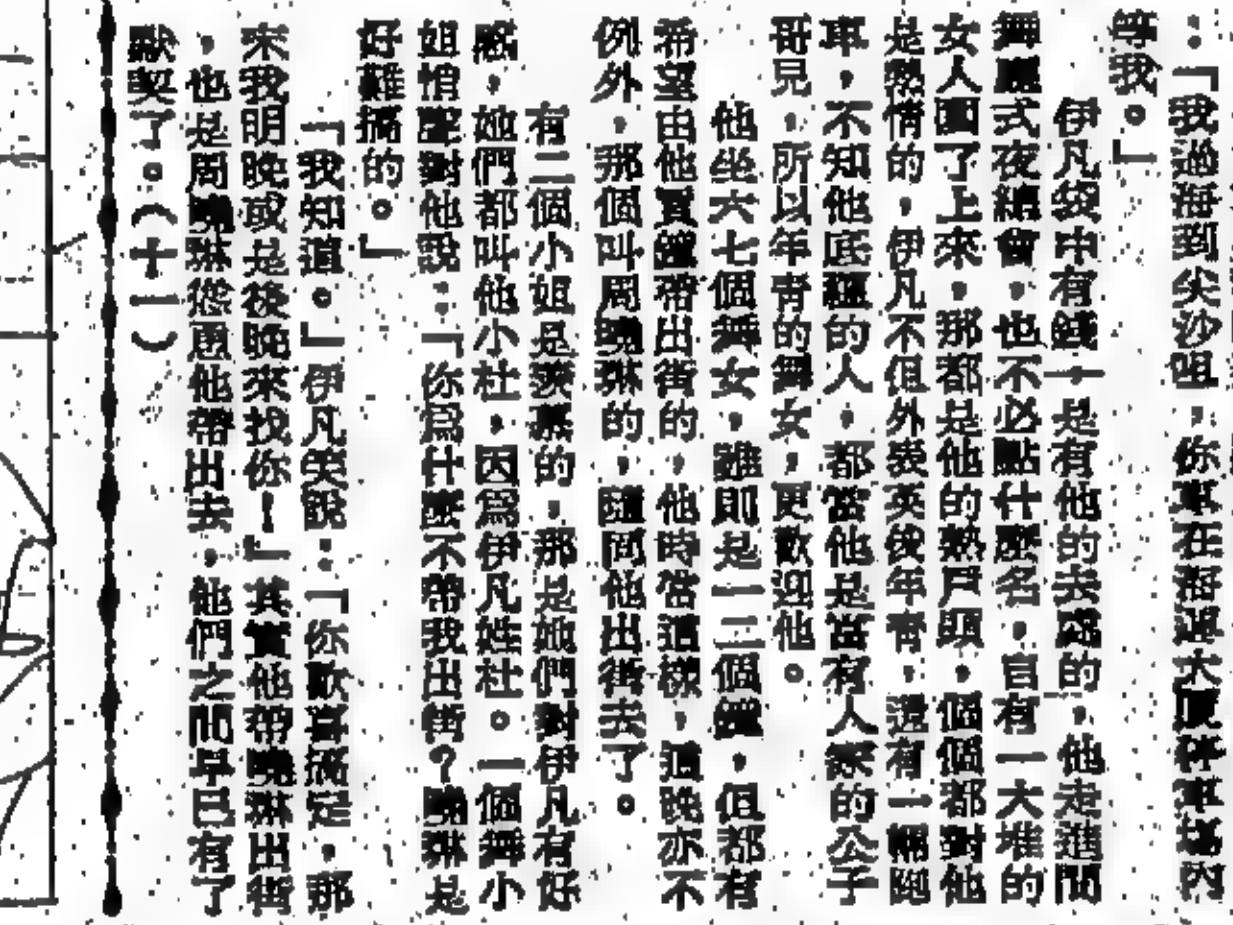 ：「我過海到尖沙咀，你車在海運大厦停車塲內
等我。」
伊凡袋中有錢，是有他的去處的，他走進間
舞廳式夜總會，也不必點什麽名，自有一大堆的
女人圍了上來，那都是他的熟戶頭，個個都對他
是熱情的，伊凡不但外表英俊年青，還有一輛跑
車，不知他底蘊的人，都當他是富有人家的公子
哥兒，所以年青的舞女，更歡迎他。
他坐六七個舞女，雖則是一二個鐘，但都有
希望由他買鐘帶出街的，他時常這樣，這晚亦不
例外，那個叫周曉琳的，隨同他出街去了。
有二個小姐是羨慕的，那是她們對伊凡有好
感，她們都叫他小杜，因爲伊凡姓杜。一個舞小
姐悄聲對他說：「你爲什麽不帶我出街？曉琳是
好難搞的。」
「我知道。」伊凡笑說：「你歡喜搞定，那
末我明晚或是後晚來找你！」其實他帶曉琳出街
，也是周曉琳慫恿他帶出去，他們之間早已有了
默契了。（十一）